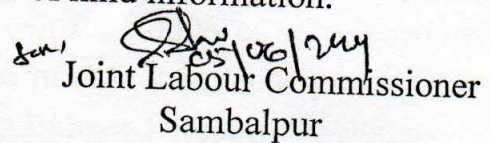 of kind information.
05/06/24
Joint Labour Commissioner
Sambalpur